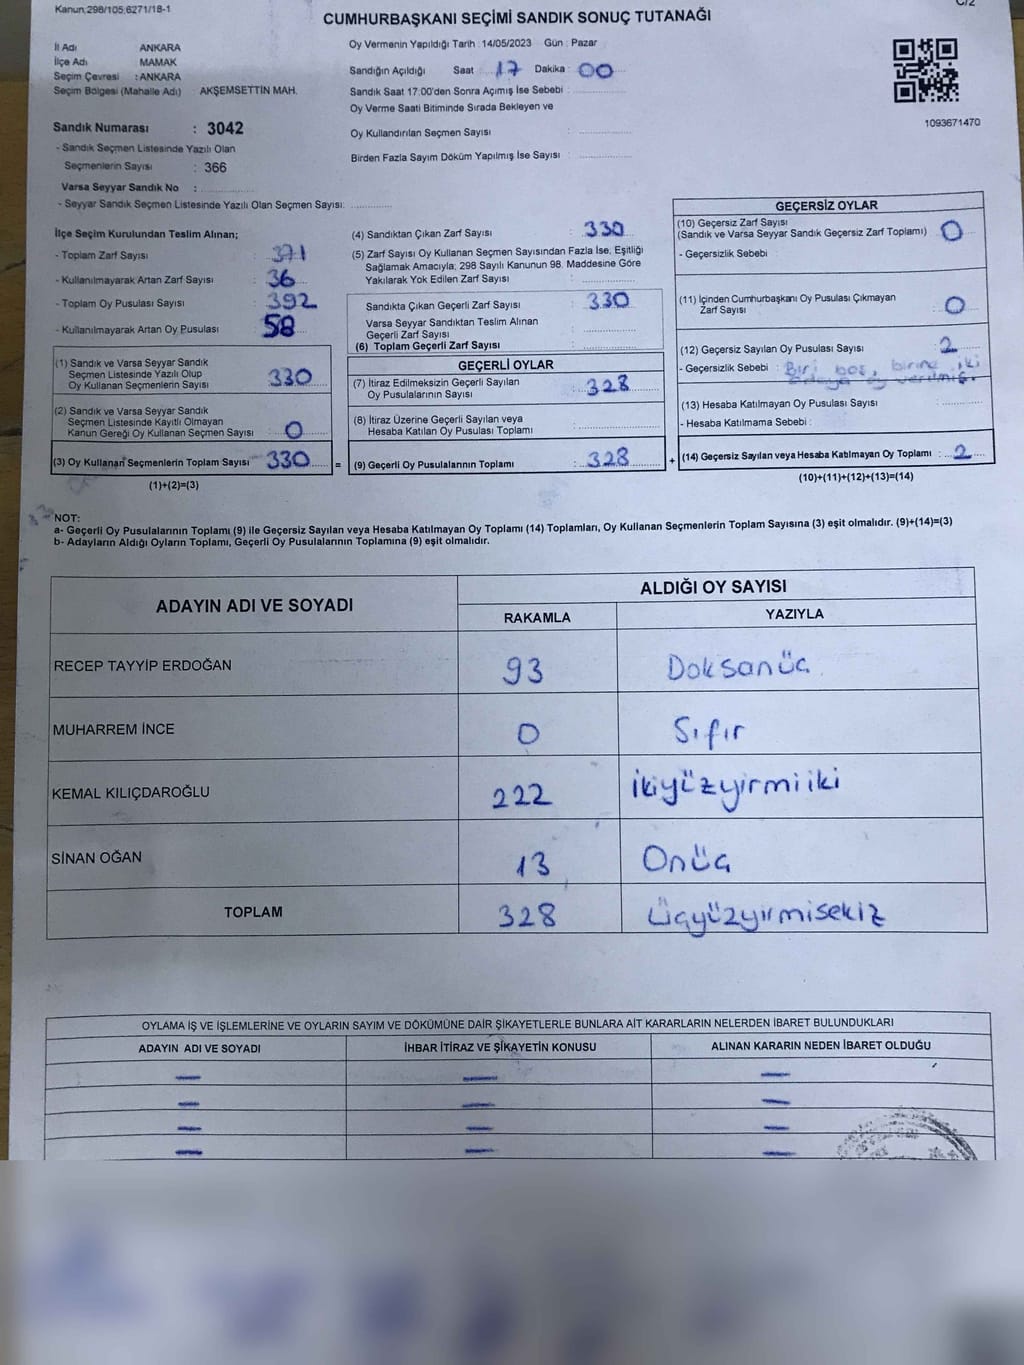 Kanun;298/105;6271/18-1
C/2
CUMHURBAŞKANI SEÇİMİ SANDIK SONUÇ TUTANAĞI
İl Adı ANKARA
İlçe Adı MAMAK
Seçim Çevresi : ANKARA
Seçim Bölgesi (Mahalle Adı) AKŞEMSETTİN MAH.
Sandık Numarası : 3042
- Sandık Seçmen Listesinde Yazılı Olan
Seçmenlerin Sayısı : 366
Varsa Seyyar Sandık No :
- Seyyar Sandık Seçmen Listesinde Yazılı Olan Seçmen Sayısı:
Oy Vermenin Yapıldığı Tarih : 14/05/2023 Gün : Pazar
Sandığın Açıldığı Saat : 17 Dakika : 00
Sandık Saat 17:00'den Sonra Açımış İse Sebebi :
Oy Verme Saati Bitiminde Sırada Bekleyen ve
Oy Kullandırılan Seçmen Sayısı :
Birden Fazla Sayım Döküm Yapılmış İse Sayısı :
1093671470
İlçe Seçim Kurulundan Teslim Alınan;
- Toplam Zarf Sayısı : 371
- Kullanılmayarak Artan Zarf Sayısı : 36
- Toplam Oy Pusulası Sayısı : 392
- Kullanılmayarak Artan Oy Pusulası : 58
(1) Sandık ve Varsa Seyyar Sandık
Seçmen Listesinde Yazılı Olup
Oy Kullanan Seçmenlerin Sayısı : 330
(2) Sandık ve Varsa Seyyar Sandık
Seçmen Listesinde Kayıtlı Olmayan
Kanun Gereği Oy Kullanan Seçmen Sayısı : 0
(3) Oy Kullanan Seçmenlerin Toplam Sayısı 330 =
(1)+(2)=(3)
(4) Sandıktan Çıkan Zarf Sayısı : 330
(5) Zarf Sayısı Oy Kullanan Seçmen Sayısından Fazla İse, Eşitliği
Sağlamak Amacıyla, 298 Sayılı Kanunun 98. Maddesine Göre
Yakılarak Yok Edilen Zarf Sayısı :
Sandıkta Çıkan Geçerli Zarf Sayısı : 330
Varsa Seyyar Sandıktan Teslim Alınan
Geçerli Zarf Sayısı :
(6) Toplam Geçerli Zarf Sayısı :
GEÇERLİ OYLAR
(7) İtiraz Edilmeksizin Geçerli Sayılan
Oy Pusulalarının Sayısı : 328
(8) İtiraz Üzerine Geçerli Sayılan veya
Hesaba Katılan Oy Pusulası Toplamı :
(9) Geçerli Oy Pusulalarının Toplamı : 328 +
GEÇERSİZ OYLAR
(10) Geçersiz Zarf Sayısı
(Sandık ve Varsa Seyyar Sandık Geçersiz Zarf Toplamı) : 0
- Geçersizlik Sebebi :
(11) İçinden Cumhurbaşkanı Oy Pusulası Çıkmayan
Zarf Sayısı : 0
(12) Geçersiz Sayılan Oy Pusulası Sayısı : 2
- Geçersizlik Sebebi : Biri boş, birine iki
adaya oy verilmiş.
(13) Hesaba Katılmayan Oy Pusulası Sayısı :
- Hesaba Katılmama Sebebi :
(14) Geçersiz Sayılan veya Hesaba Katılmayan Oy Toplamı : 2
(10)+(11)+(12)+(13)=(14)
NOT:
a- Geçerli Oy Pusulalarının Toplamı (9) ile Geçersiz Sayılan veya Hesaba Katılmayan Oy Toplamı (14) Toplamları, Oy Kullanan Seçmenlerin Toplam Sayısına (3) eşit olmalıdır. (9)+(14)=(3)
b- Adayların Aldığı Oyların Toplamı, Geçerli Oy Pusulalarının Toplamına (9) eşit olmalıdır.
ADAYIN ADI VE SOYADI ALDIĞI OY SAYISI
RAKAMLA YAZIYLA
RECEP TAYYİP ERDOĞAN 93 Doksanüç
MUHARREM İNCE 0 Sıfır
KEMAL KILIÇDAROĞLU 222 ikiyüzyirmiiki
SİNAN OĞAN 13 Onüç
TOPLAM 328 Üçyüzyirmisekiz
OYLAMA İŞ VE İŞLEMLERİNE VE OYLARIN SAYIM VE DÖKÜMÜNE DAİR ŞİKAYETLERLE BUNLARA AİT KARARLARIN NELERDEN İBARET BULUNDUKLARI
ADAYIN ADI VE SOYADI İHBAR İTİRAZ VE ŞİKAYETİN KONUSU ALINAN KARARIN NEDEN İBARET OLDUĞU